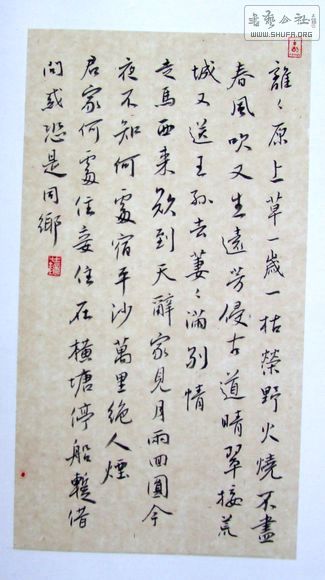 書藝公社
WWW.SHUFA.ORG
離々原上草一歲一枯榮野火燒不盡
春風吹又生遠芳侵古道晴翠接荒
城又送王孫去萋々滿別情
走馬西來欲到天辭家見月兩回圓今
夜不知何處宿平沙萬里絕人煙
君家何處住妾住在橫塘停船暫借
問或恐是同鄉